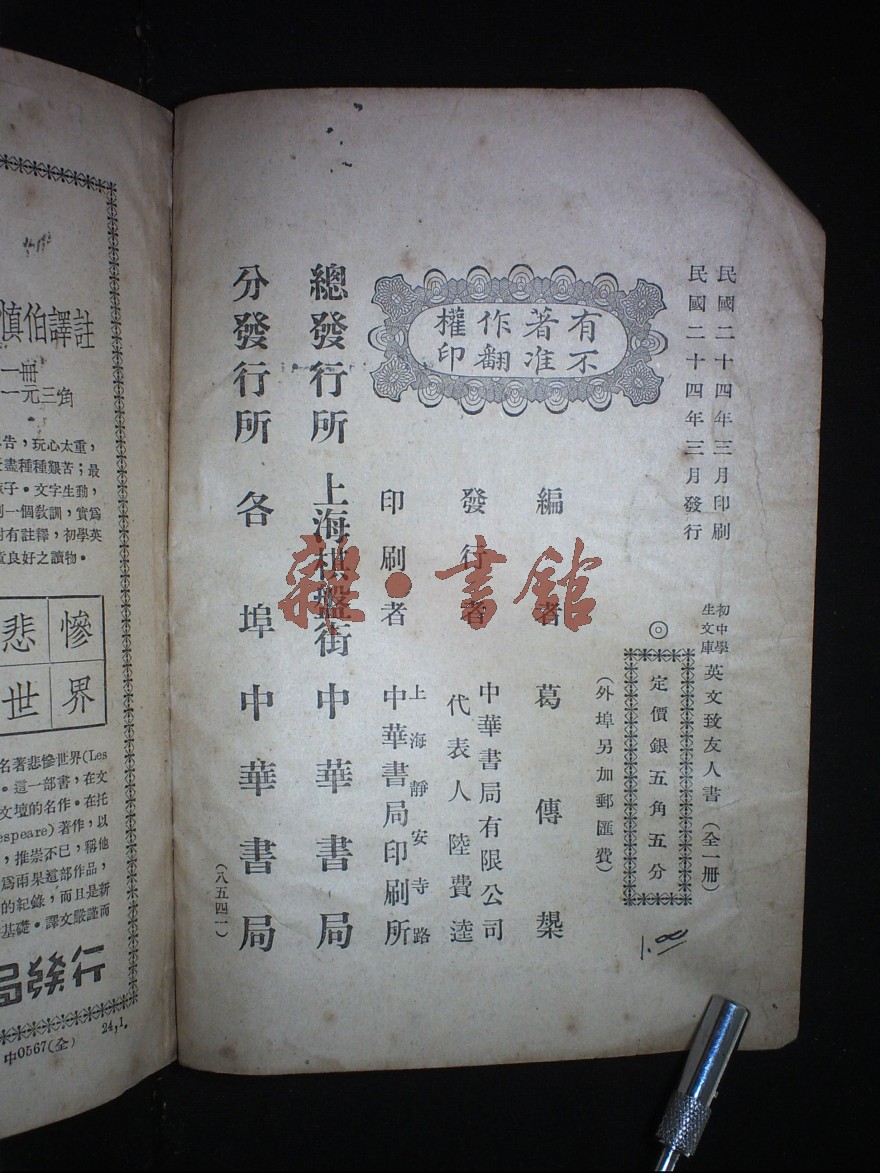 民國二十四年三月印刷
民國二十四年三月發行
初中學生文庫 英文致友人書（全一冊）
◎
定價銀五角五分
（外埠另加郵匯費）
有著作權
不准翻印
編者 葛傳槼
發行者 中華書局有限公司
代表人陸費逵
印刷者 上海靜安寺路
中華書局印刷所
總發行所 上海棋盤街 中華書局
分發行所 各埠中華書局
（八五四一）
1.00
雜·書館
慎伯譯註
一冊
一元三角
告，玩心太重，
盡種種艱苦；最
孩子。文字生動，
到一個教訓，實爲
附有註釋，初學英
良好之讀物。
悲慘
世界
名著悲慘世界(Les
。這一部書，在文
文壇的名作。在托
espeare)著作，以
，推崇不已，稱他
爲雨果這部作品，
的紀錄，而且是新
基礎。譯文嚴謹而
局發行
24,1.
中0567(全)